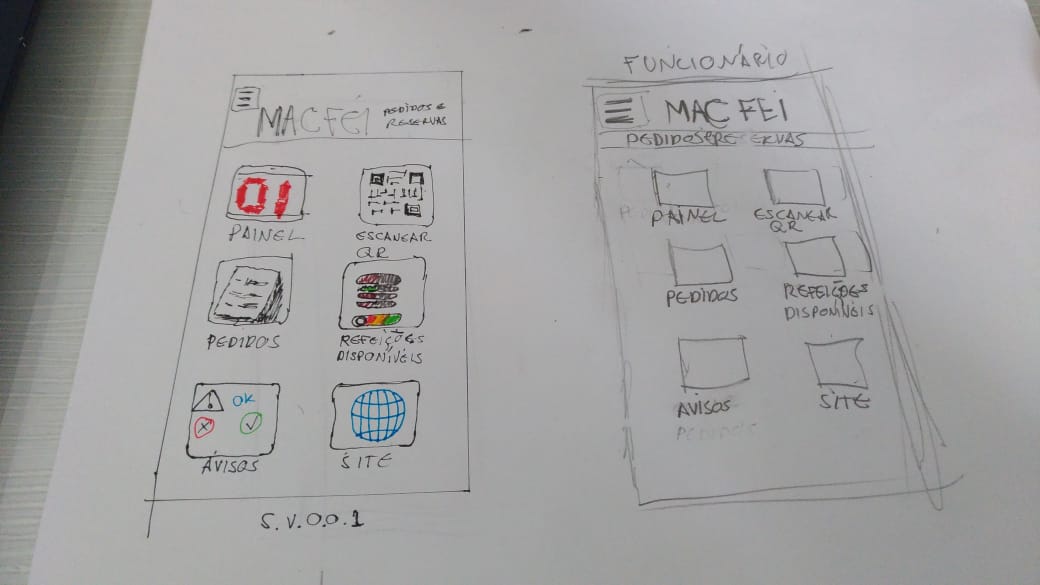 MAC FEI PEDIDOS E
RESERVAS
01
PAINEL
ESCANEAR
QR
PEDIDOS
REFEIÇÕES
DISPONÍVEIS
OK
AVISOS
SITE
S.V.0.0.1
FUNCIONÁRIO
MAC FEI
PEDIDOS E RESERVAS
PAINEL
ESCANEAR
QR
PEDIDOS
REFEIÇÕES
DISPONÍVEIS
AVISOS
PEDIDOS
SITE